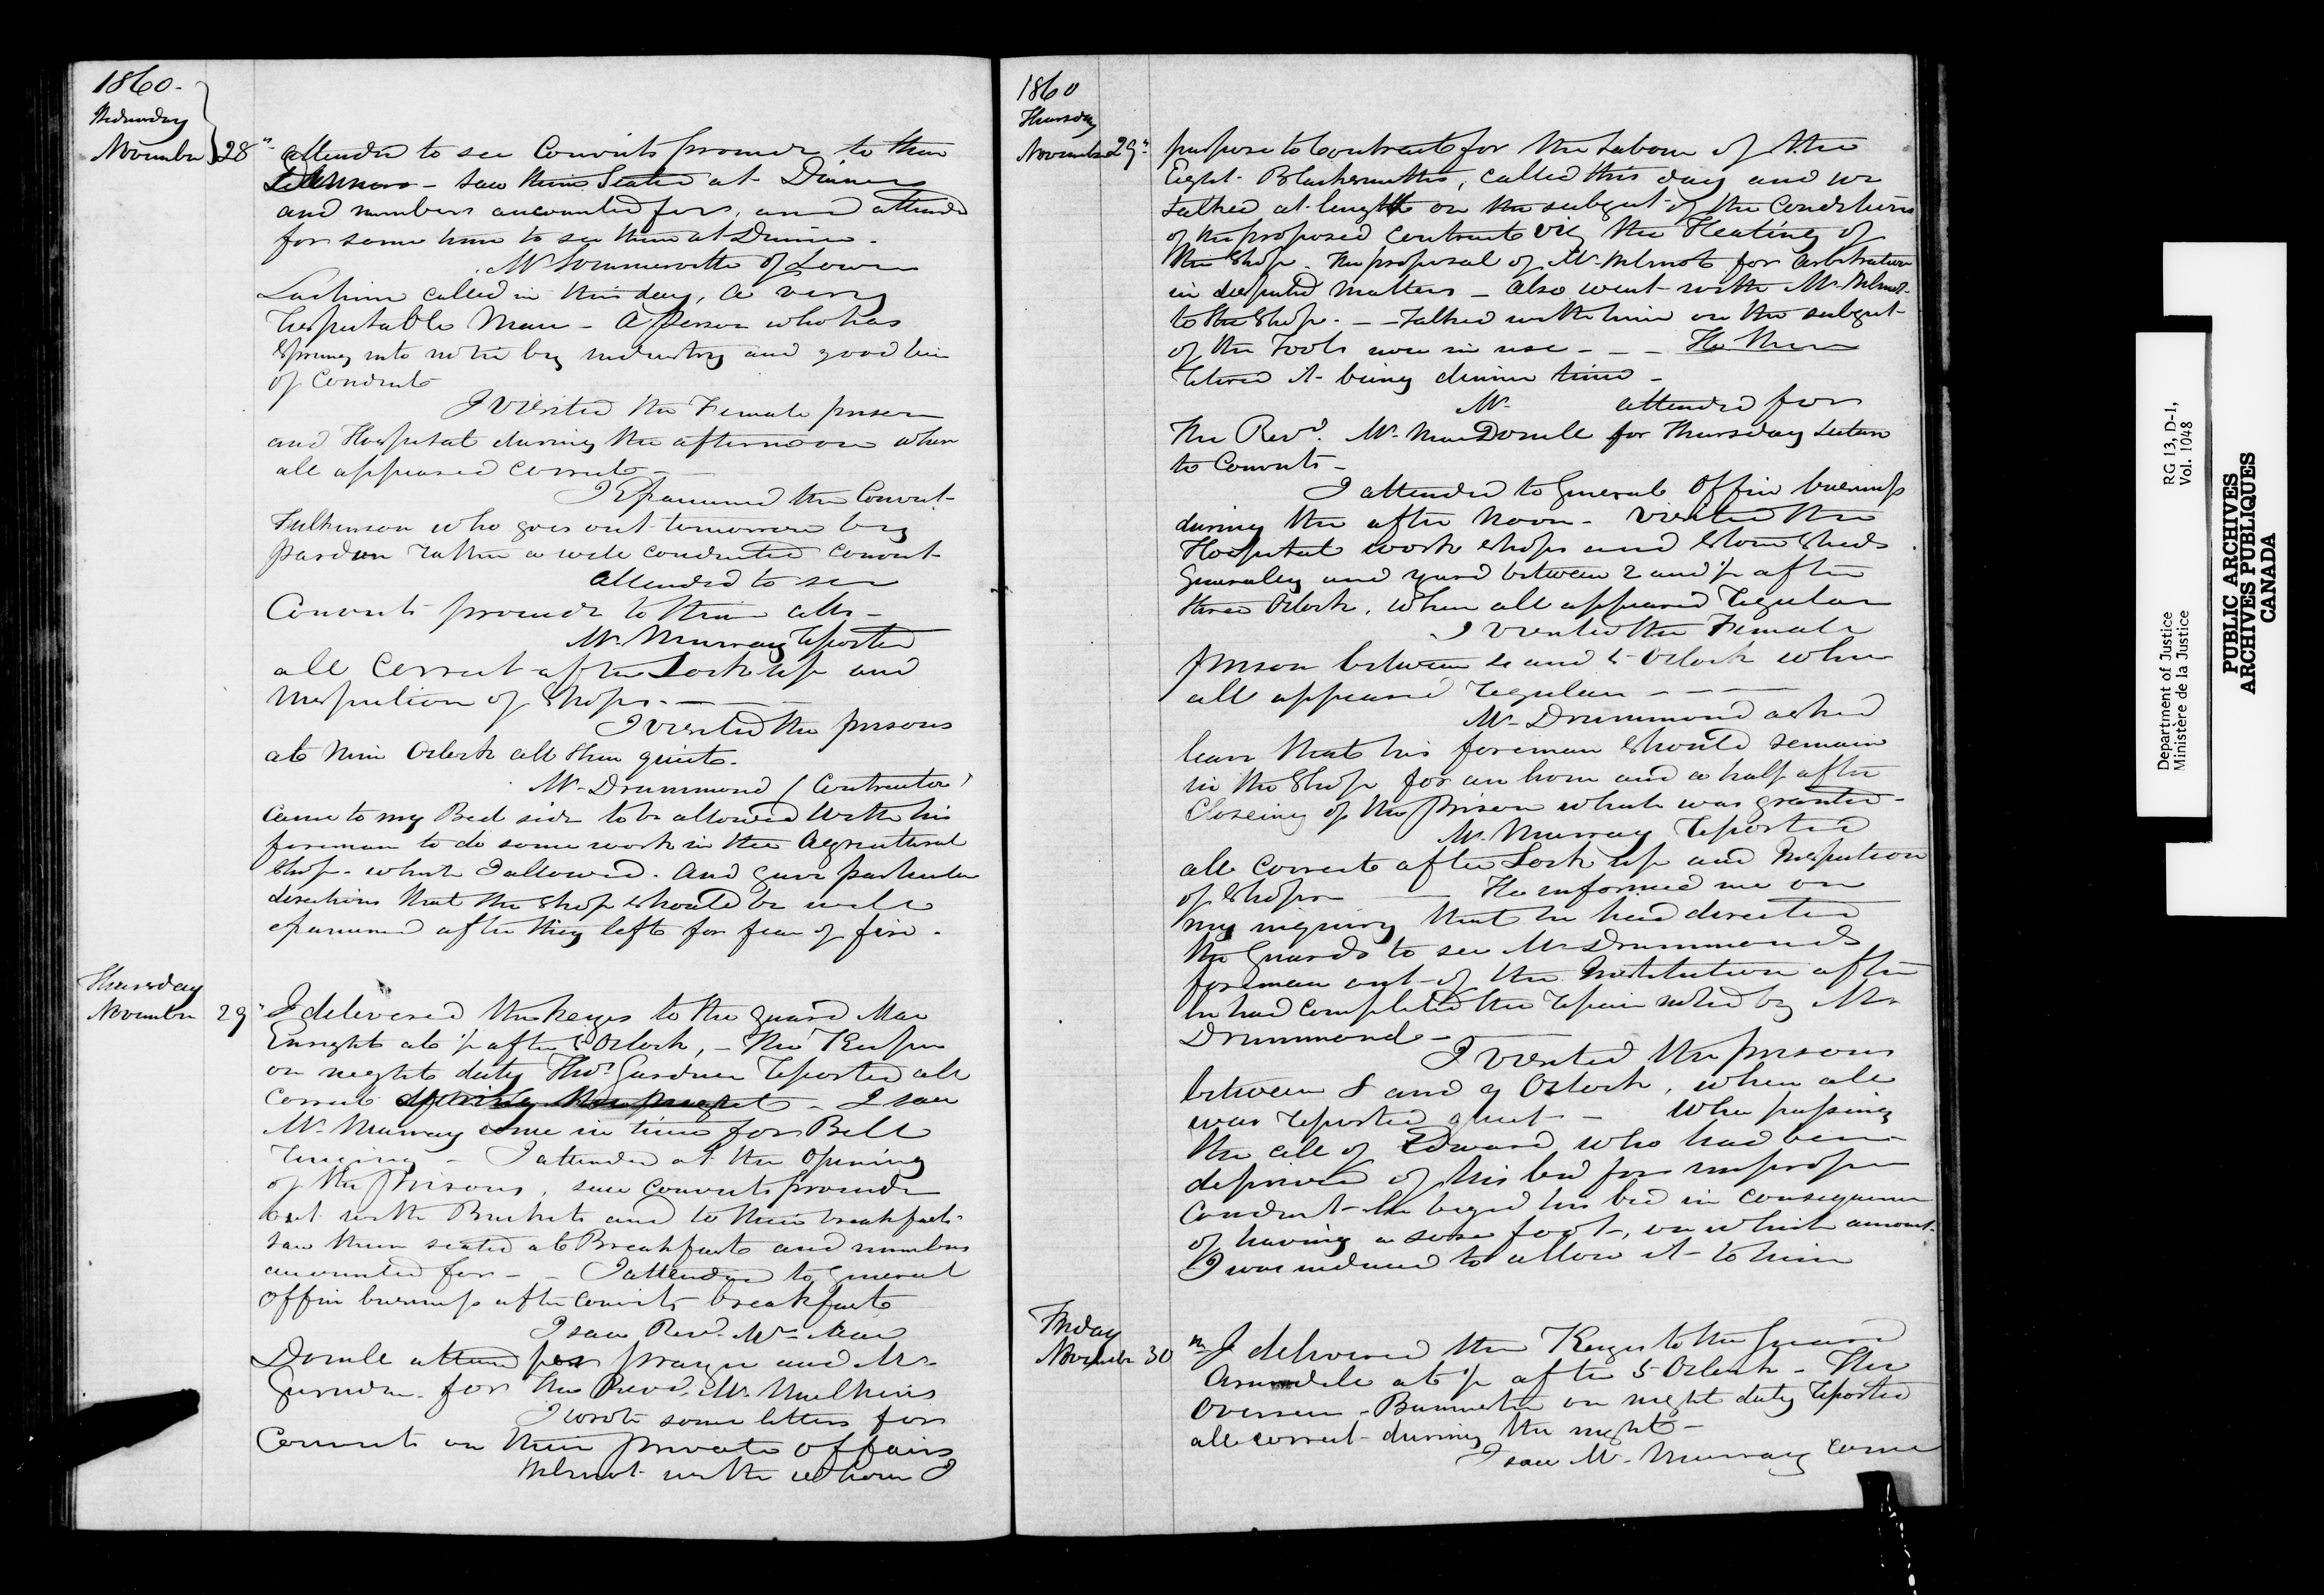 1860.
Wednesday
November 28th attended to see Convicts proceed to their
Dinners - saw them Seated at Dinner
and numbers accounted for, and attended
for some time to see them at Dinner.
Mr Sommerville of Lower
Lachine called in this day, a very
respectable Man - A person who has
sprung into notice by industry and good line
of conduct
I visited the Female prison
and Hospital during the afternoon when
all appeared correct -
I Examined the Convict
Fulkinson who goes out tomorrow by
pardon rather a well conducted convict
attended to see
Convicts proceed to their cells -
Mr. Murray reported
all correct after Lock up and
Inspection of Shops. -
I visited the prisons
at nine Oclock all then quiet.
Mr. Drummond (Contractor)
came to my Bed side to be allowed with his
foreman to do some work in the Agricultural
Shop - which I allowed. And gave particular
directions that the shop should be well
examined after they left for fear of fire.
Thursday
November 29" I delivered the keys to the guard Mac
Enright at ½ after 5 Oclock, - The Keeper
on night duty Thos. Gardner reported all
correct - I saw
Mr. Murray come in time for Bell
ringing - I attended at the opening
of the Prisons, saw convicts proceed
out with Buckets and to their breakfast
saw them seated at Breakfast and numbers
accounted for - - I attended to general
office business after convicts breakfast
I saw Revd. Mr. Mac
Donell attend for prayer and Mr.
for the Revd. Mr. Mulkins
I wrote some letters for
Convicts on their private affairs
with whom I
1860
Thursday
November 29th purpose to contract for the Labour of the
Eight Blacksmiths, called this day and we
talked at length on the subject of the Conditions
of the proposed contract viz the Heating of
the Shop. The proposal of Mr. for arbitration
in disputed matters - also went with Mr.
to the Shop. - - Talked with him on the subject
of the Tools now in use - - - He then
retired it being dinner time -
Mr. attended for
the Revd. Mr. MacDonell for Thursday Lecture
to Convicts -
I attended to General Office business
during the after noon - visited the
Hospital work shops and Stone Sheds
generally and yard between 2 and ½ after
three Oclock, when all appeared regular
I visited the Female
prison between 4 and 5 Oclock when
all appeared regular - - - -
Mr. Drummond asked
leave that his foreman should remain
in the Shop for an hour and a half after
Closeing of the Prison which was granted -
Mr. Murray reported
all correct after Lock up and Inspection
of Shops - He informed me on
my inquiry that he had directed
the Guards to see Mr Drummonds
foreman out of the Institution after
he had completed the repair noted by Mr
Drummond -
I visited the prisons
between 8 and 9 Oclock, when all
was reported quiet - When passing
the cell of Edward who had been
deprived of his bed for improper
conduct - he beged his bed in consequence
of having a sore foot -, on which account
I was induced to allow it to him
Friday
November 30th I delivered the Keys to the Guard
at ½ after 5 Oclock - The
Overseer on night duty reported
all correct during the night -
I saw Mr. Murray come
Department of Justice RG 13, D-1,
Ministère de la Justice Vol. 1048
PUBLIC ARCHIVES
ARCHIVES PUBLIQUES
CANADA